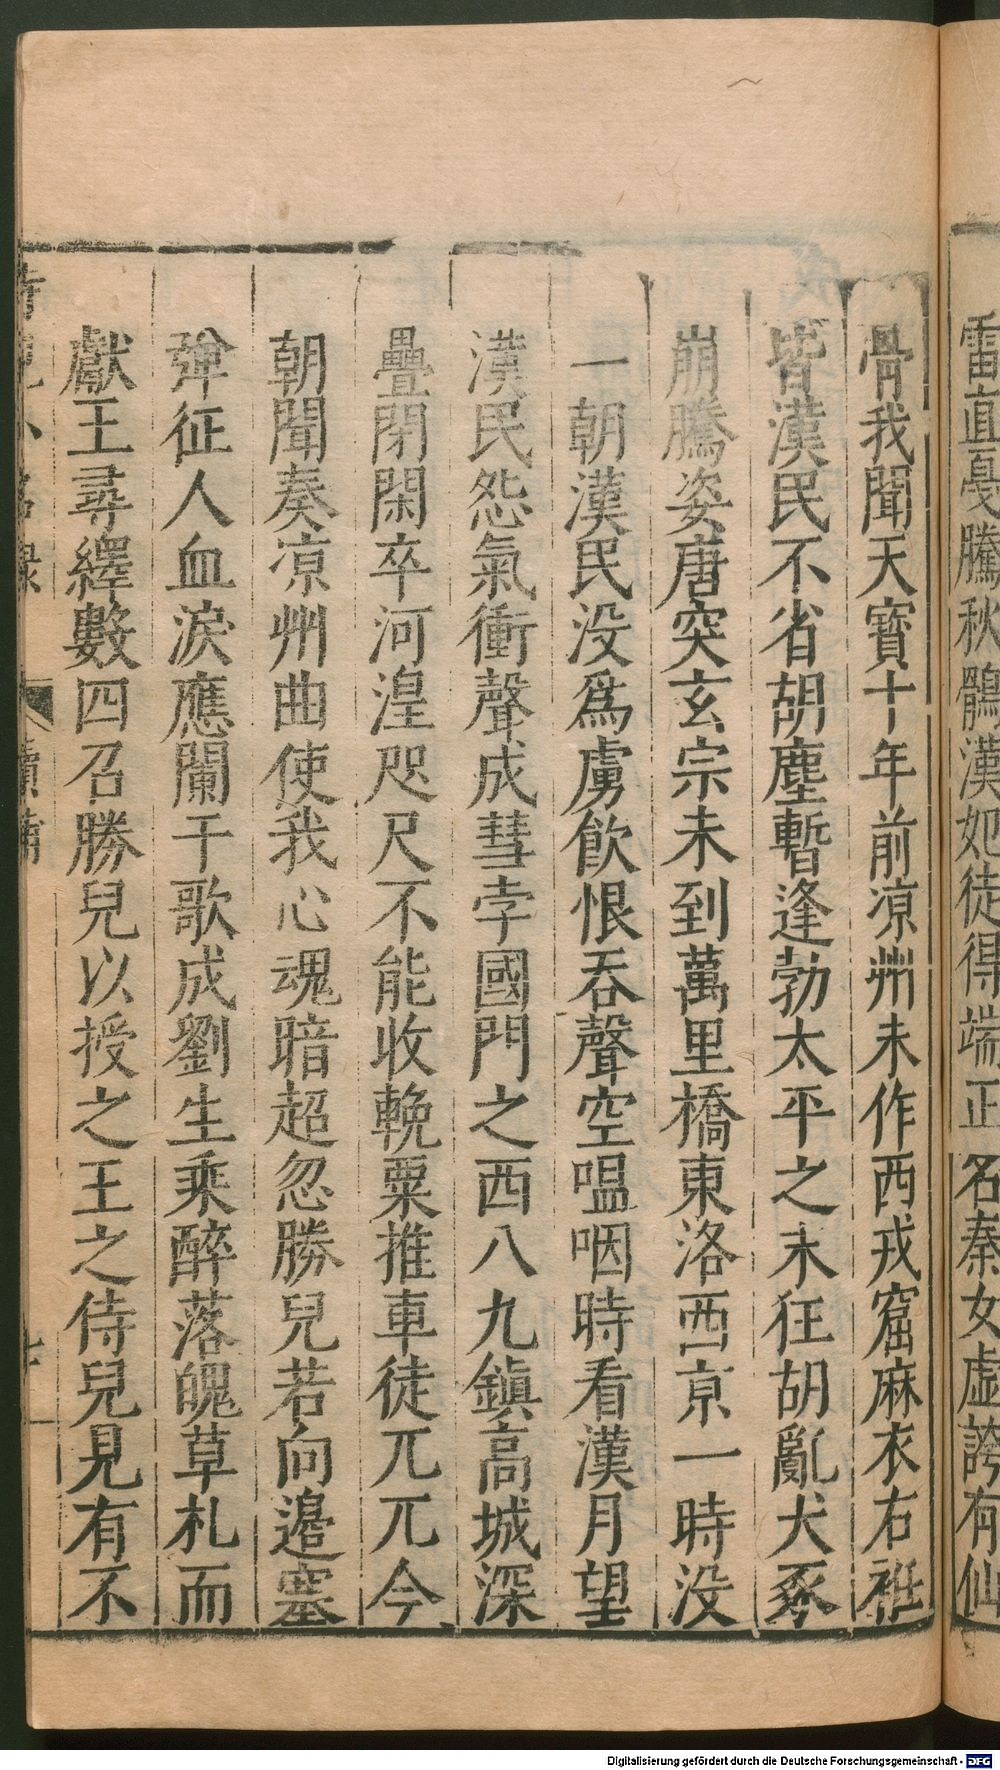 雷直戞騰秋鶻漢如徒得端正名秦女虚誇有仙
骨我聞天寶十年前凉州未作西戎窟麻衣右袵
皆漢民不省胡塵暫蓬勃太平之末狂胡亂犬豕
崩騰姿唐突玄宗未到萬里橋東洛西京一時没
一朝漢民没爲虜飮恨吞聲空嗢咽時看漢月望
漢民怨氣衝聲成彗孛國門之西八九鎮高城深
壘閉閑卒河湟咫尺不能收輓粟推車徒兀兀今
朝聞奏凉州曲使我心魂暗超忽勝兒若向邉塞
彈征人血淚應闌干歌成劉生乘醉落魄草札而
獻王尋繹數四召勝兒以授之王之侍兒見有不
續補
Digitalisierung gefördert durch die Deutsche Forschungsgemeinschaft - DFG